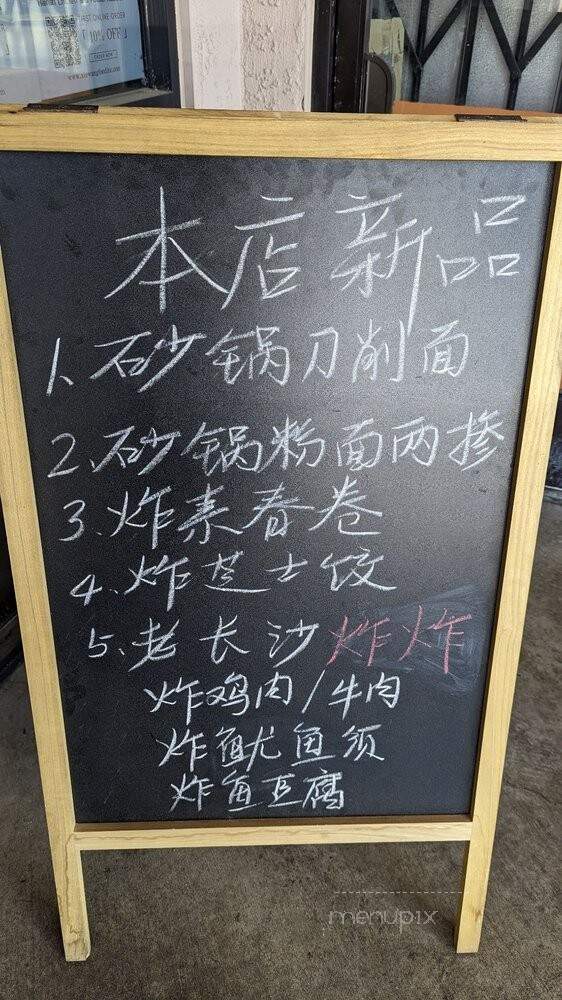 FIRST ONLINE ORDER
10% OFF
ORDER NOW
本店新品
1、砂锅刀削面
2、砂锅粉面两掺
3、炸素春卷
4、炸芝士饺
5、老长沙炸炸
炸鸡肉/牛肉
炸鱿鱼须
炸鱼豆腐
menupix